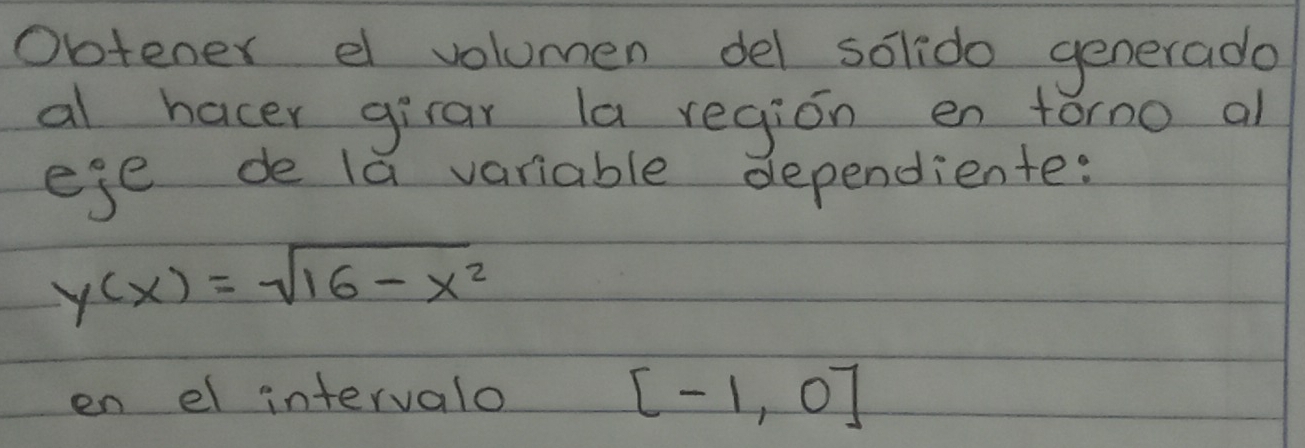 Obtener el volumen del sólido generado
al hacer girar la región en torno al
eje de la variable dependiente:
y(x) = √16 - x²
en el intervalo [-1, 0]